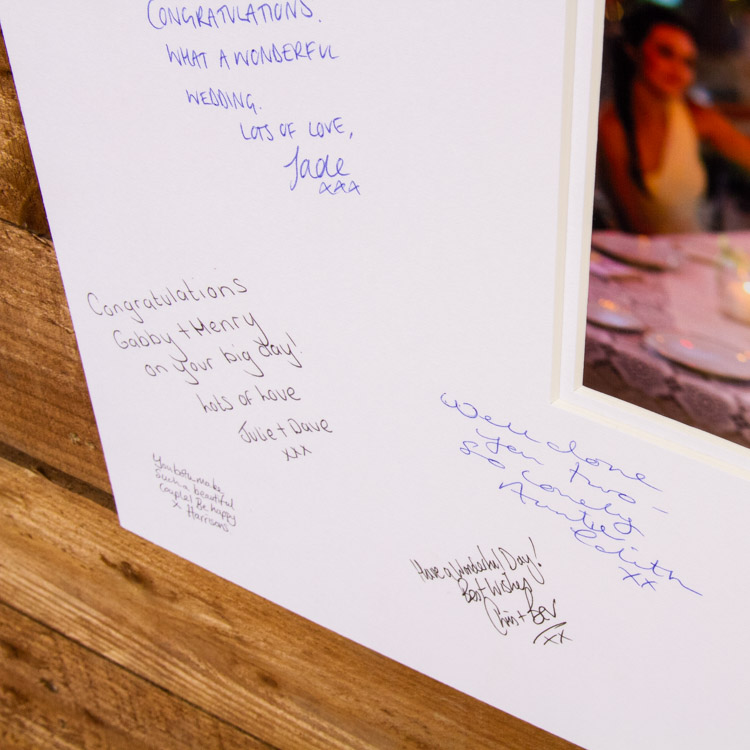 CONGRATULATIONS.
WHAT A WONDERFUL
WEDDING.
LOTS OF LOVE,
Jade
xxx
Congratulations
Gabby + Henry
on your big day!
Lots of Love
Julie + Dave
xxx
You both make
such a beautiful
couple! Be happy
x Harrisons
Well done
you two -
so lovely
Auntie
Edith
xx
Have a Wonderful Day!
Best Wishes
Chris + Bev
xx